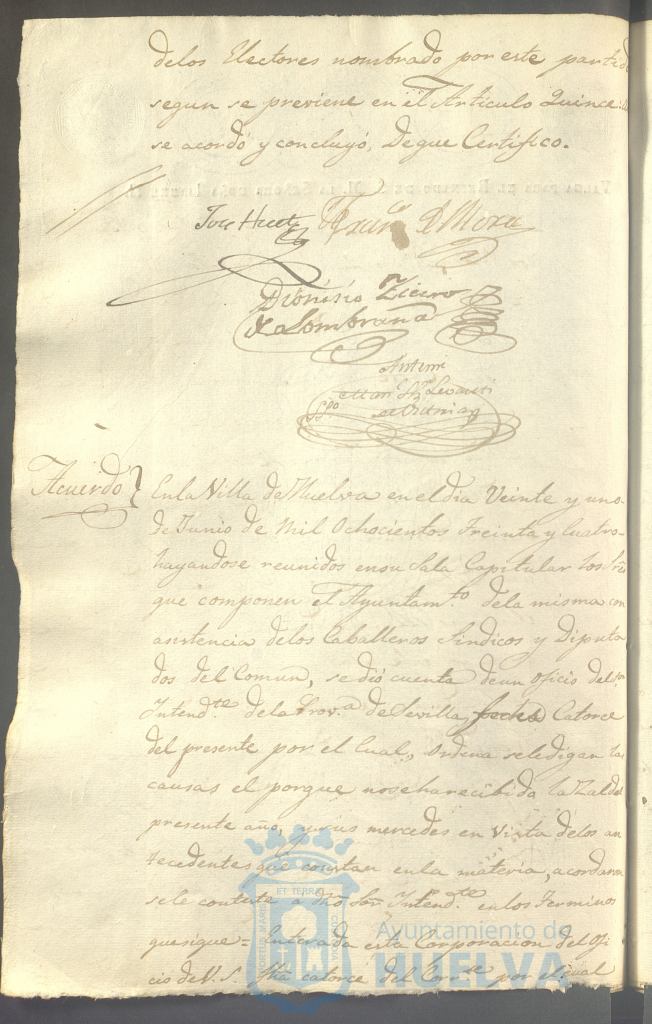 delos Electores nombrado por este partido
segun se previene en el Articulo Quince:
se acordó y concluyó, Deque Certifico.
Jose Huet Fran.co D Mora
Dionisio
de Lombraña
Acuerdo} Enla Villa de Huelva en el dia Veinte y uno
de Junio de Mil Ochocientos Treinta y Cuatro
hayandose reunidos ensu Sala Capitular los
que componen el Ayuntam.to dela misma con
asistencia delos Caballeros Sindicos y Diputa
dos del Comun, se dió cuenta deun oficio del
Intend.te dela Prov.a de Sevilla, fecha Catorce
del presente por el Cual, ordena seledigan las
causas el porque noseharecibido la del
presente año, y sus mercedes en Vista delos an
tecedentes que constan enla materia, acordaron
sele conteste a dho Sor Intend.te enlos Terminos
quesigue= Enterada esta Corporacion del ofi
cio de V. S. fha catorce del Corr.te por el cual
ET TERRAE
Ayuntamiento de
HUELVA